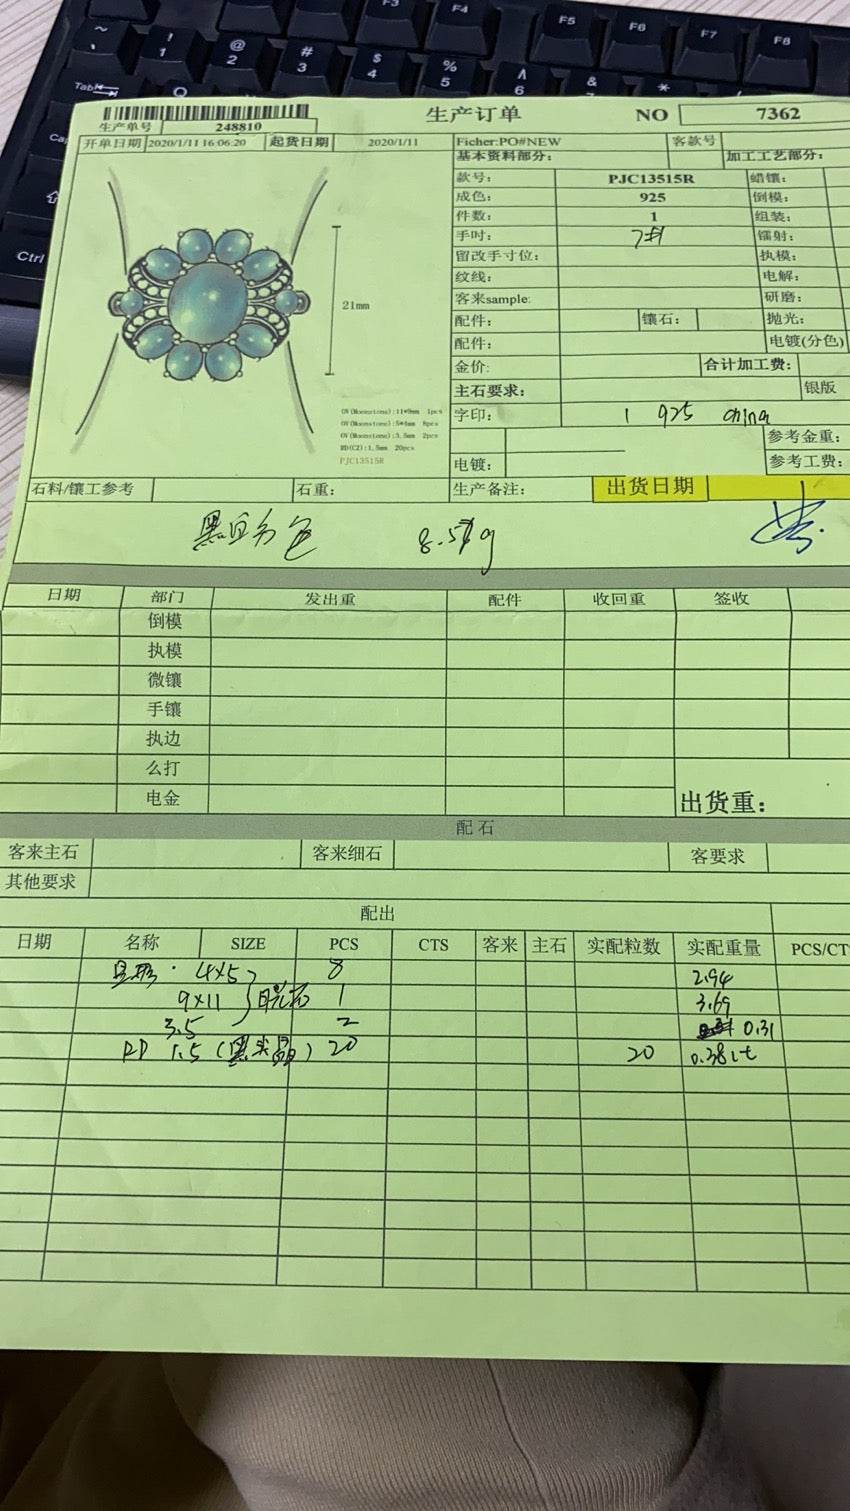 F3 F4 F5 F6 F7 F8
~ ! 1 @ 2 # 3 $ 4 % 5 ∧ 6 & *
Tab Q
Ctrl
生产单号 248810
生产订单 NO 7362
开单日期 2020/1/11 16:06:20 起货日期 2020/1/11 Ficher:PO#NEW 客款号
基本资料部分: 加工工艺部分:
款号: PJC13515R 蜡镶:
成色: 925 倒模:
件数: 1 组装:
手吋: 7# 镭射:
留改手寸位: 执模:
纹线: 电解:
客来sample: 研磨:
配件: 镶石: 抛光:
配件: 电镀(分色)
金价: 合计加工费:
主石要求: 银版
字印: 925 china
参考金重:
电镀: 参考工费:
21mm
OV(Moonstone):11*9mm 1pcs
OV(Moonstone):5*4mm 8pcs
OV(Moonstone):3.5mm 2pcs
RD(CZ):1.5mm 20pcs
PJC13515R
石料/镶工参考 石重: 生产备注: 出货日期
分色 g
日期 部门 发出重 配件 收回重 签收
倒模
执模
微镶
手镶
执边
么打
电金
出货重:
配石
客来主石 客来细石 客要求
其他要求
配出
日期 名称 SIZE PCS CTS 客来 主石 实配粒数 实配重量 PCS/CT
4x5 8 2.94
9x11 月光石 1 3.69
3.5 2 0.31
RD 1.5 20 20 0.38ct